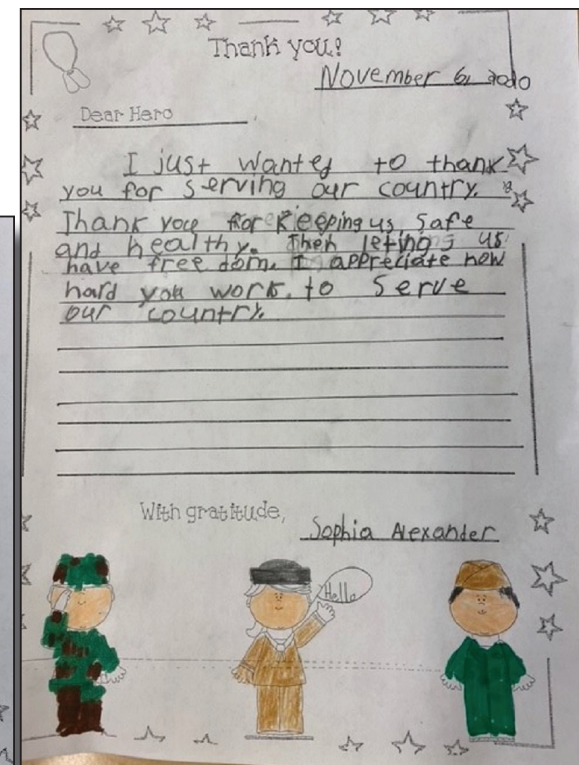 Thank you!
November 6, 2020
Dear Hero
I just wanted to thank
you for serving our country.
Thank you for keeping us safe
and healthy. Then leting us
have free dom. I appreciate how
hard you work. to serve
our country.
With gratitude,
Sophia Alexander
Hello